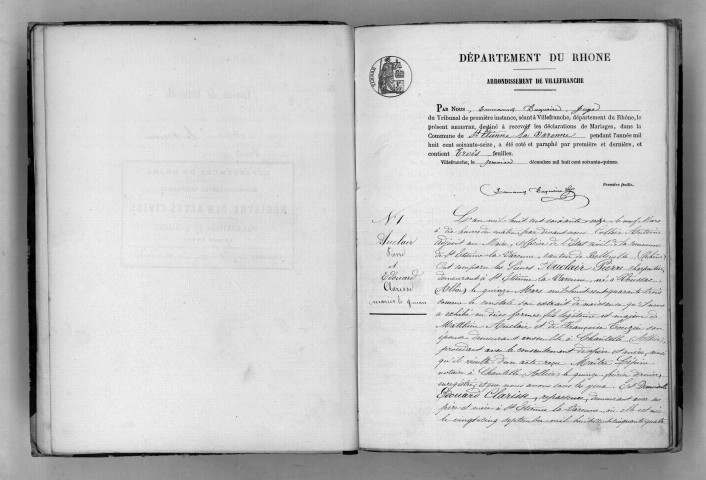 DÉPARTEMENT DU RHONE
ARRONDISSEMENT DE VILLEFRANCHE
PAR NOUS, Duquaire, Juge
du Tribunal de première instance, séant à Villefranche, département du Rhône, le
présent REGISTRE, destiné à recevoir les déclarations de Mariages, dans la
Commune de St Etienne la Varenne pendant l'année mil
huit cent soixante-seize, a été coté et paraphé par première et dernière, et
contient trois feuilles.
Villefranche, le premier décembre mil huit cent soixante-quinze.
Première feuille.
Duquaire
N° 1
Auclair
Pierre
et
Edouard
Clarisse
mariés le quinze
L'an mil huit cent soixante seize le neuf Mars
à dix heures du matin par devant nous Antoine
adjoint au Maire, officier de l'état civil de la commune
de St Etienne la Varenne, canton de Belleville (Rhône)
Ont comparu les Sieurs Auclair Pierre, charpentier,
demeurant à St Etienne la Varenne, né à
Allier, le quinze Mars mil huit cent quarante trois
comme le constate son extrait de naissance
en dûes formes, fils légitime et majeur de
Matthieu Auclair et de Françoise son
épouse demeurant ensemble à Chantelle Allier,
procédant avec le consentement de père et mère, ainsi
qu'il résulte d'un acte reçu Maître
notaire à Chantelle Allier le quinze février dernier,
enregistré, et que nous avons sous les yeux. Et Demoiselle
Edouard Clarisse, repasseuse, demeurant avec ses
père et mère à St Etienne la Varenne, où elle est née
le vingt cinq septembre mil huit cent cinquante quatre